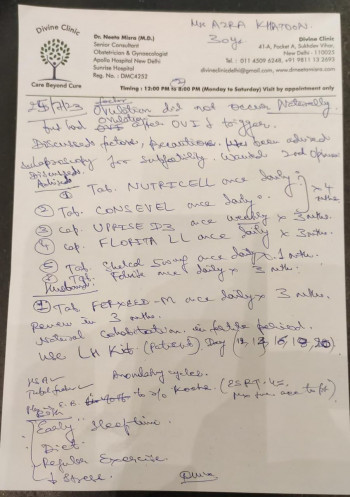 Divine Clinic
Care Beyond Cure
Dr. Neeta Misra (M.D.)
Senior Consultant
Obstetrician & Gynaecologist
Apollo Hospital New Delhi
Sunrise Hospital
Reg. No. : DMC4252
Mrs AZRA KHATOON
30yr
Divine Clinic
41-A, Pocket A, Sukhdev Vihar,
New Delhi - 110025
Tel. : 011 4509 6248, +91 9811 13 2693
divineclinicdelhi@gmail.com, www.drneetamisra.com
Timing : 12:00 PM to 8:00 PM (Monday to Saturday) Visit by appointment only
Ovulation did not occur Naturally
but had ovulation after OVI & trigger.
Discussed factors, precautions. Has been advised
Laparoscopy for Subfertility. Wanted 2nd opinion
Discussed.
Advised
① Tab. NUTRICELL once daily
② Tab. CONSEVEL once daily. x 4 mths
③ Cap. UPRISE D3 once weekly x 3 mths.
④ Cap. FLORITA LL once daily x 3 mths.
⑤ Tab. once daily x 1 mth.
⑥ Tab. once daily x 3 mths.
Husband:
① Tab FERXRED-M once daily x 3 mths.
Review in 3 mths.
Natural Cohabitation in fertile period.
Use LH Kit (Patient) Day
HSA Anovulatory cycles.
Tubal factor
Early Sleep time
Diet
Regular Exercise
↓ Stress